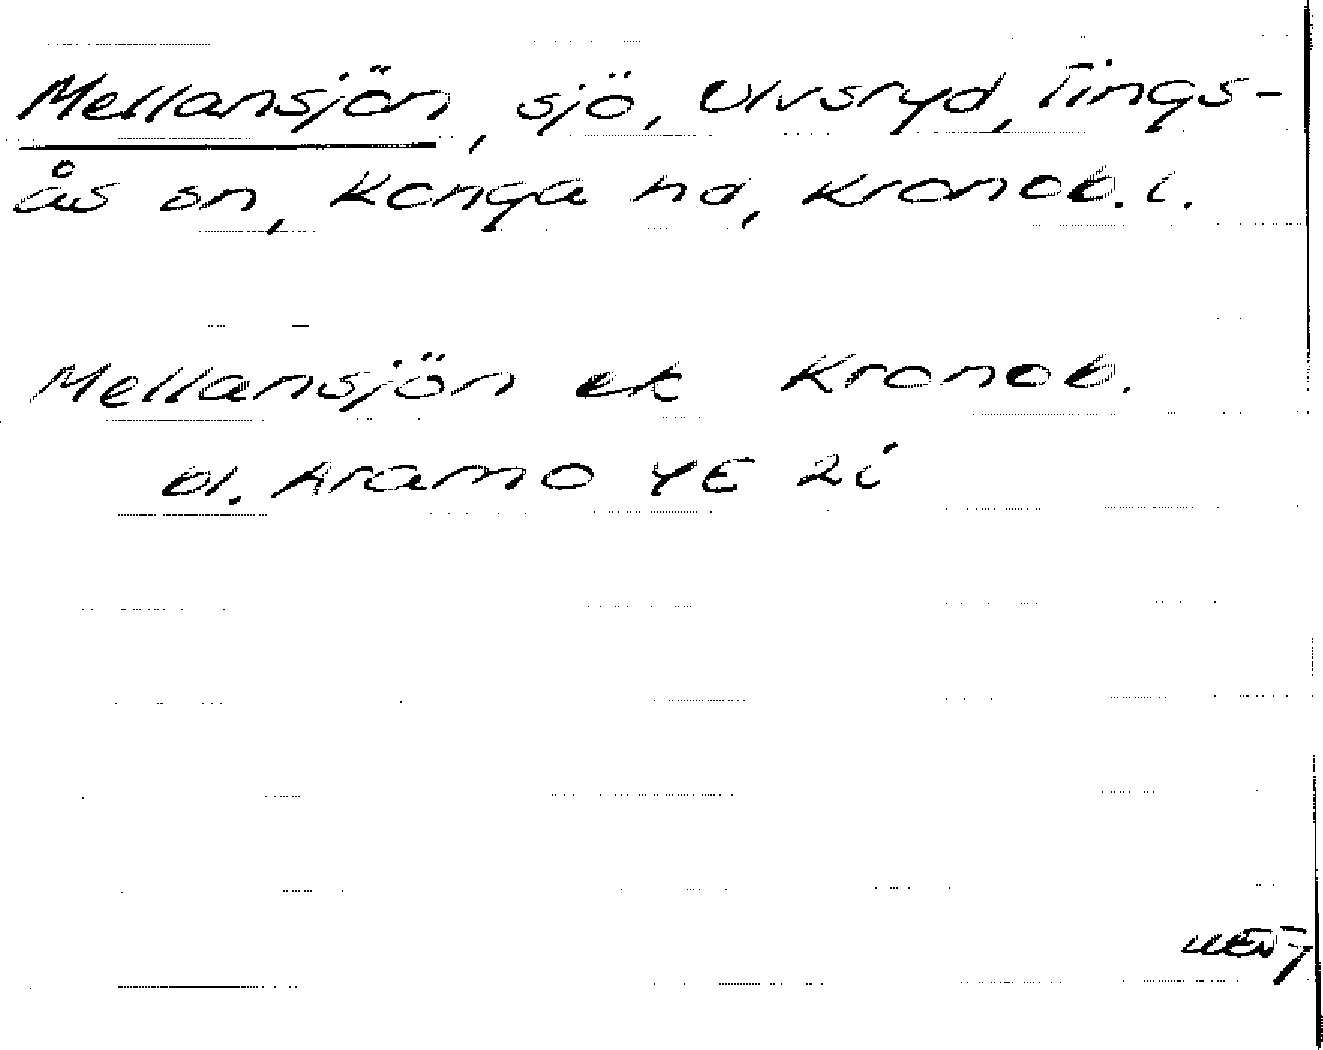 Mellansjön, sjö, Ulvsryd, Tings-
ås sn, Konga hd, Kronob. l.
Mellansjön ek Kronob.
bl. Aramo 4E 2i